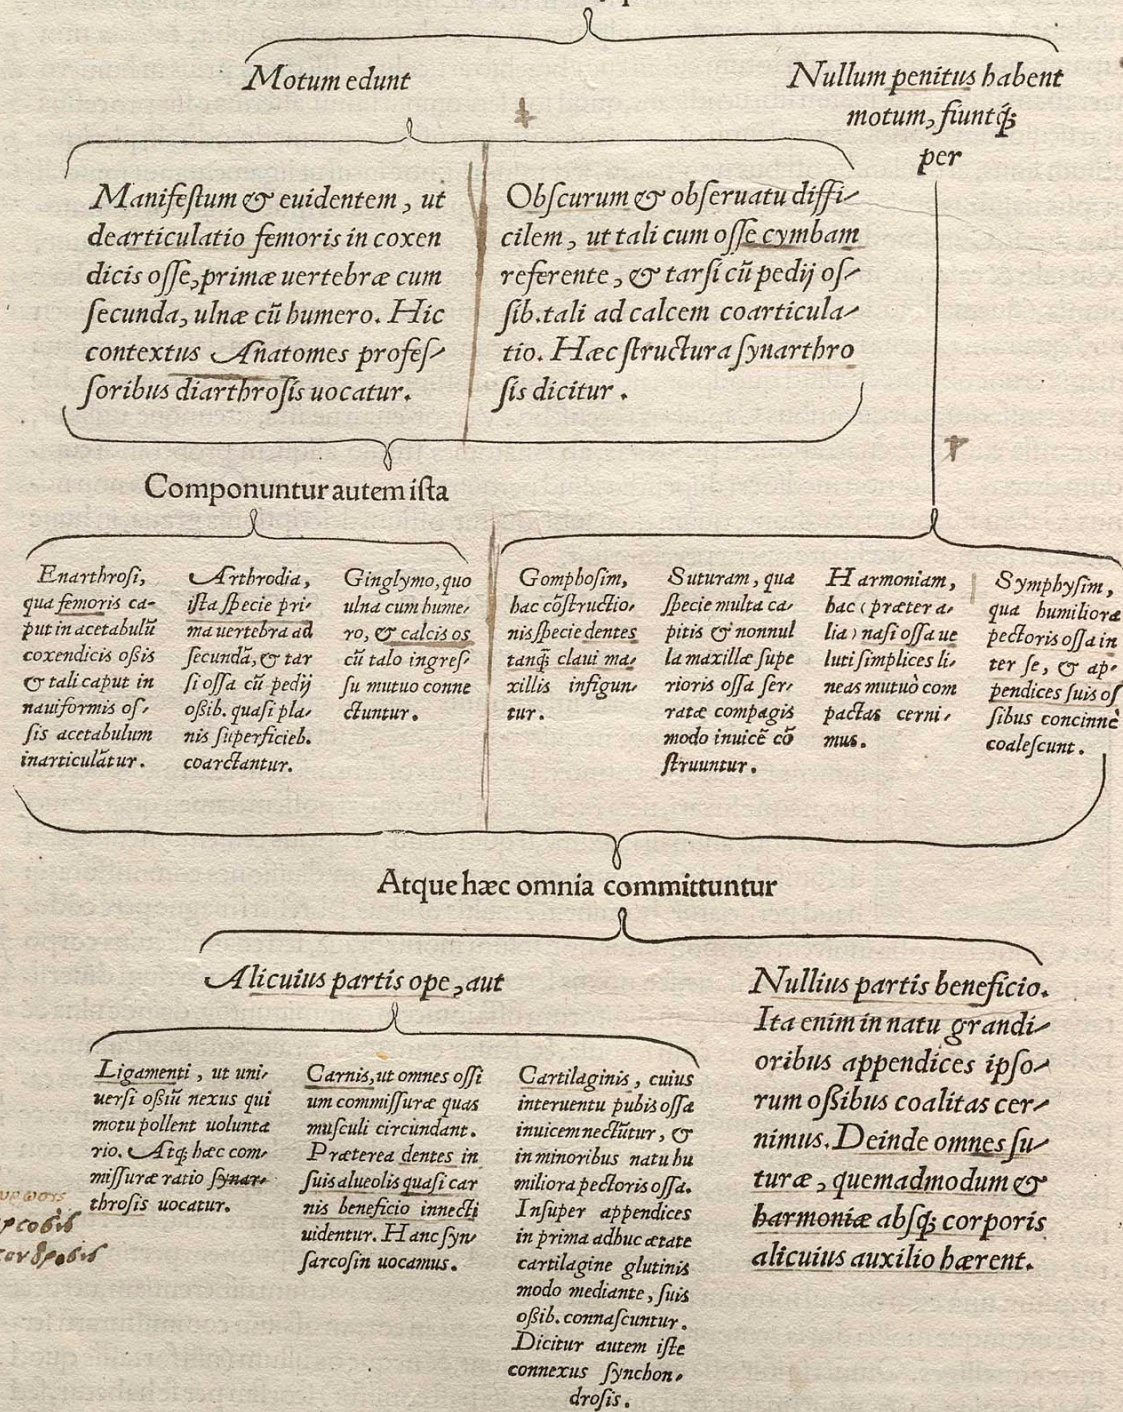 Motum edunt
Nullum penitus habent
motum, fiuntq́;
per
Manifeſtum & euidentem, ut
dearticulatio femoris in coxen
dicis oſſe, primæ uertebræ cum
ſecunda, ulnæ cũ humero. Hic
contextus Anatomes profeſ-
ſoribus diarthroſis uocatur.
Obſcurum & obſeruatu diffi-
cilem, ut tali cum oſſe cymbam
referente, & tarſi cũ pedij oſ-
ſib. tali ad calcem coarticula-
tio. Hæc ſtructura ſynarthro
ſis dicitur.
Componuntur autem iſta
Enarthroſi,
qua femoris ca-
put in acetabulũ
coxendicis oßis
& tali caput in
nauiformis oſ-
ſis acetabulum
inarticulãtur.
Arthrodia,
iſta ſpecie pri-
ma uertebra ad
ſecundã, & tar
ſi oſſa cũ pedij
oßib. quaſi pla-
nis ſuperficieb.
coarctantur.
Ginglymo, quo
ulna cum hume-
ro, & calcis os
cũ talo ingreſ-
ſu mutuo conne
ctuntur.
Gomphoſim,
hac cõſtructio-
nis ſpecie dentes
tanq̃ claui ma-
xillis infigun-
tur.
Suturam, qua
ſpecie multa ca-
pitis & nonnul
la maxillæ ſupe
rioris oſſa ſer-
ratæ compagis
modo inuicẽ cõ
ſtruuntur.
Harmoniam,
hac (præter a-
lia) naſi oſſa ue
luti ſimplices li-
neas mutuò com
pactas cerni-
mus.
Symphyſim,
qua humiliora
pectoris oſſa in
ter ſe, & ap-
pendices ſuis oſ
ſibus concinnè
coaleſcunt.
Atque hæc omnia committuntur
Alicuius partis ope, aut
Nullius partis beneficio.
Ita enim in natu grandi-
oribus appendices ipſo-
rum oßibus coalitas cer-
nimus. Deinde omnes ſu-
turæ, quemadmodum &
harmoniæ abſq́; corporis
alicuius auxilio hærent.
Ligamenti, ut uni-
uerſi oßiũ nexus qui
motu pollent uolunta
rio. Atq́; hæc com-
miſſuræ ratio ſynar-
throſis uocatur.
Carnis, ut omnes oſſi
um commiſſuræ quas
muſculi circundant.
Præterea dentes in
ſuis alueolis quaſi car
nis beneficio innecti
uidentur. Hanc ſyn-
ſarcoſin uocamus.
Cartilaginis, cuius
interuentu pubis oſſa
inuicem nectũtur, &
in minoribus natu hu
miliora pectoris oſſa.
Inſuper appendices
in prima adhuc ætate
cartilagine glutinis
modo mediante, ſuis
oßib. connaſcuntur.
Dicitur autem iſte
connexus ſynchon-
droſis.